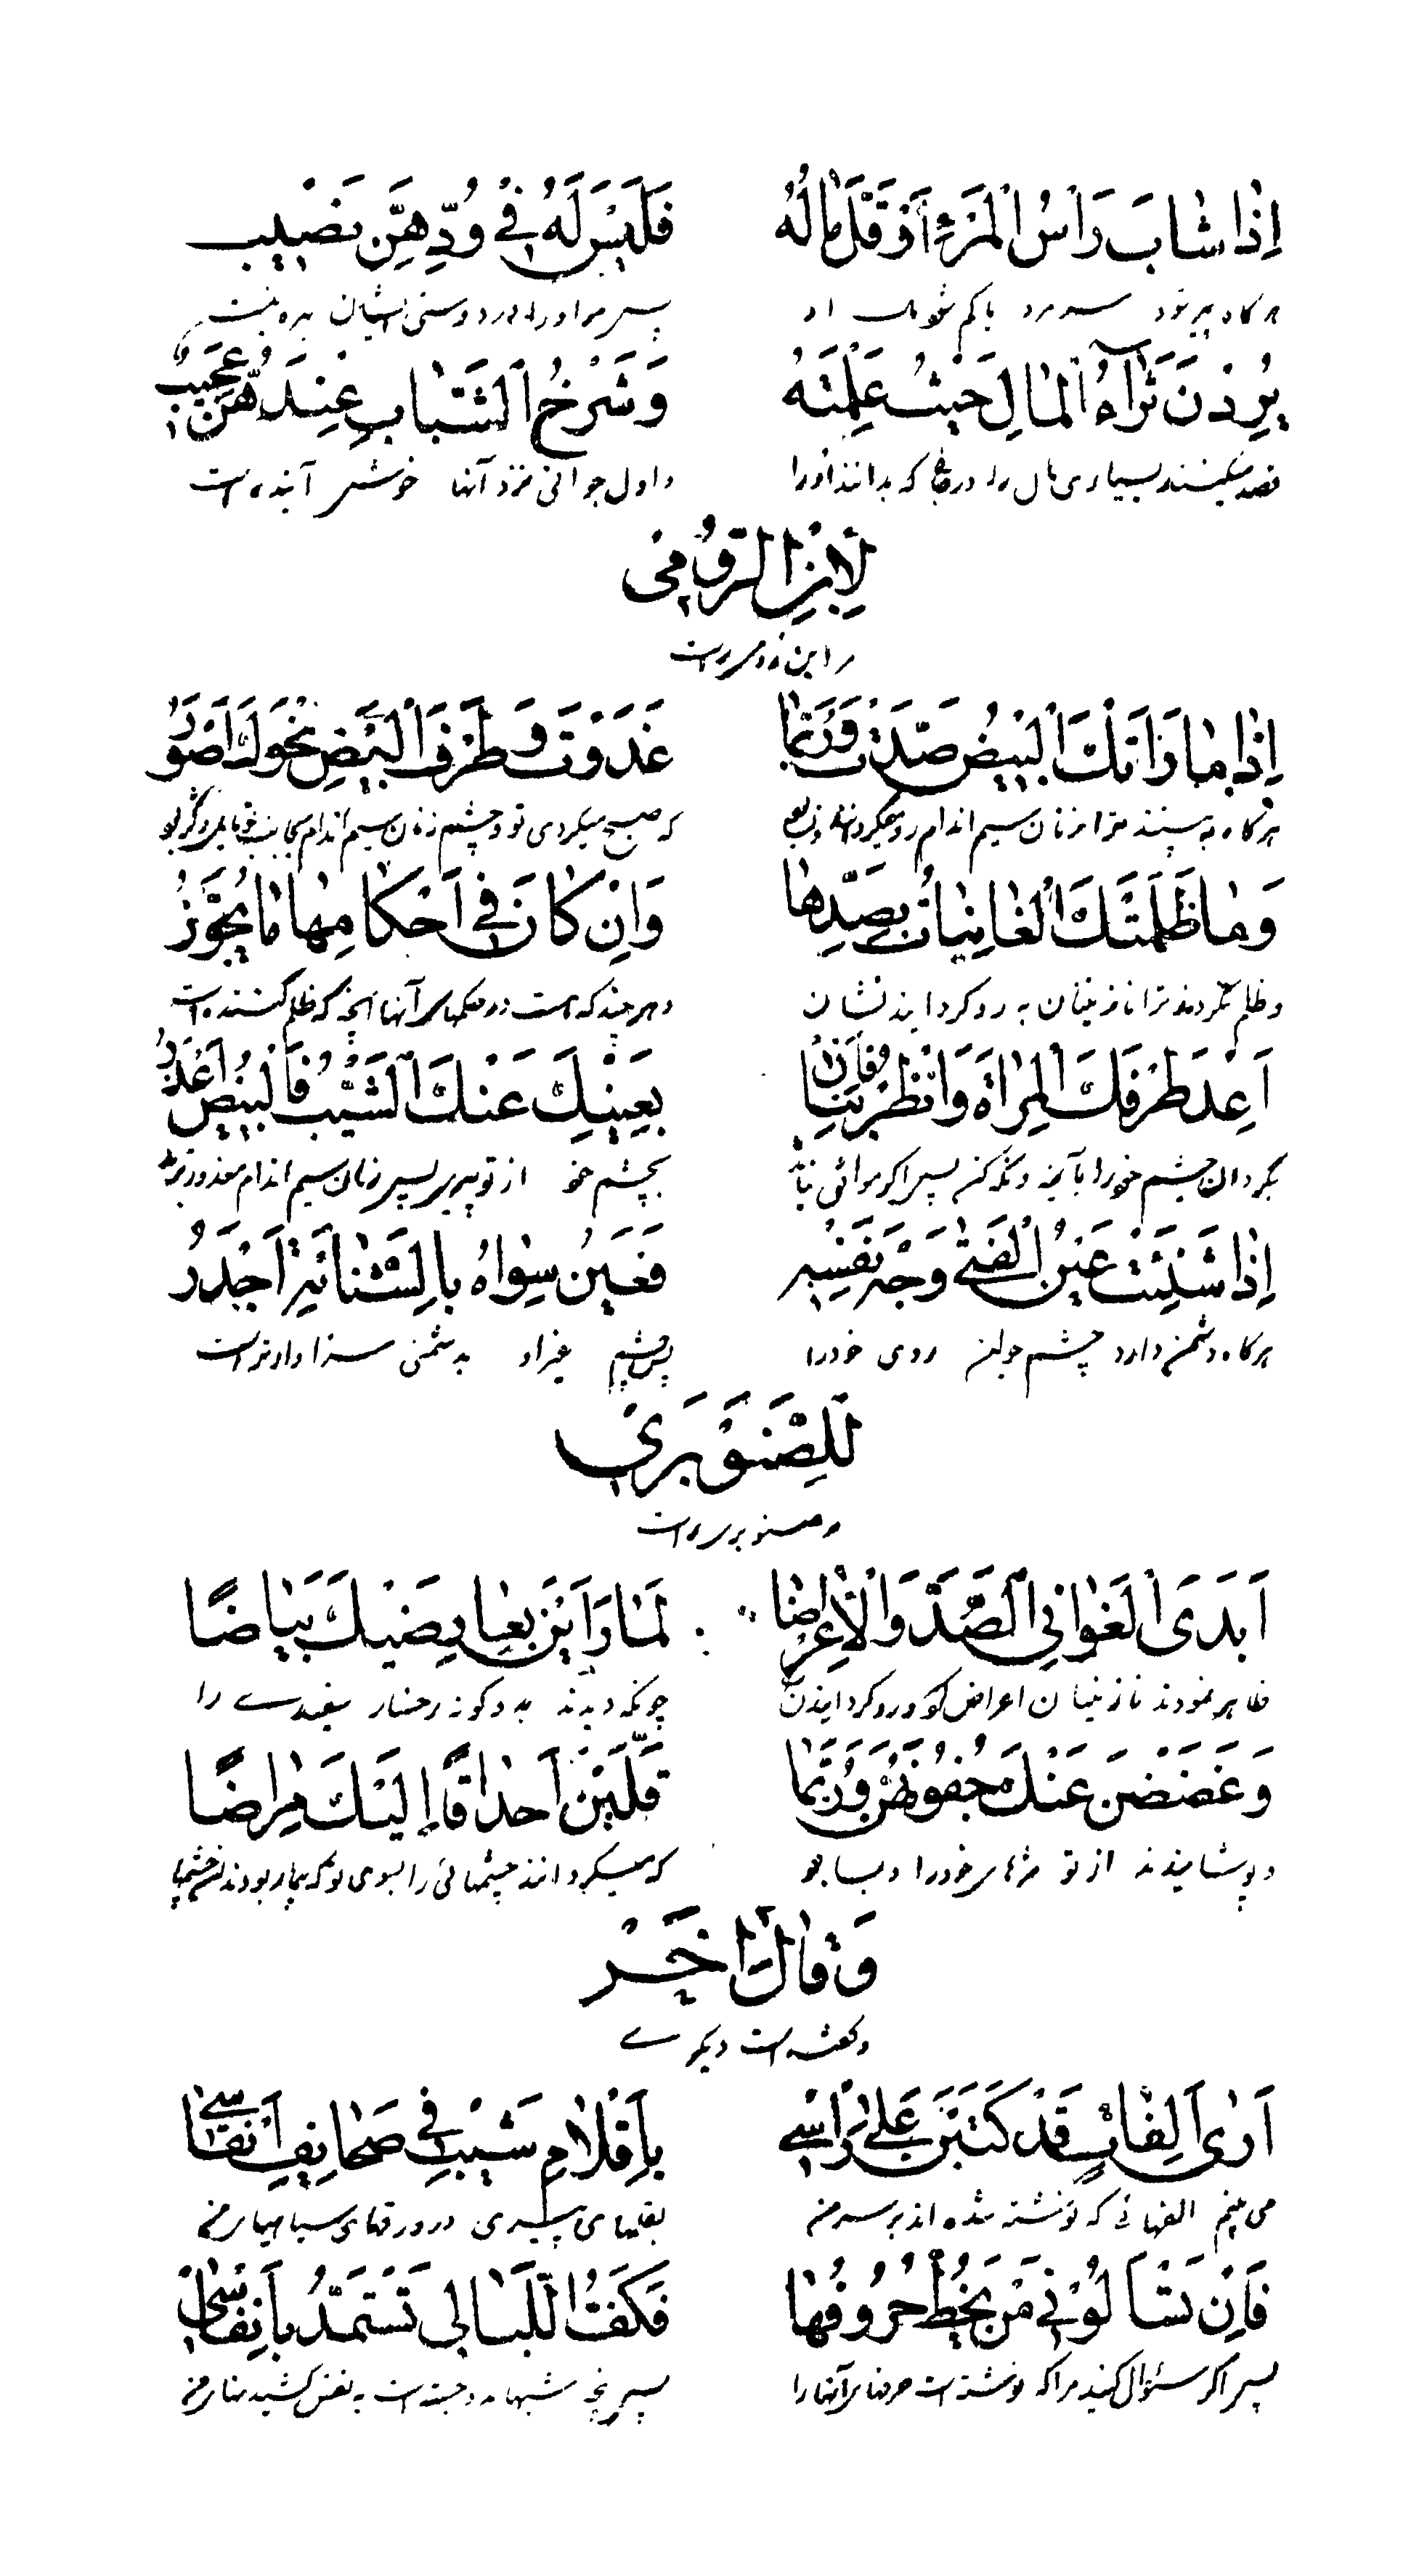 اِذٰا شٰابَ رَاْسُ الْمَرْءِ اَوْ قَلَّ مٰالُهُ فَلَيْسَ لَهُ فِي وُدِّهِنَّ نَصْيِبٌ
هرکاه پیر شود سر مرد یا کم شود مال او پس مر او را در دوستی ایشان بهره نیست
يُرِدْنَ ثَرٰاءَ الْمٰالِ حَيْثُ عَلِمْنَهُ وَشَرْخُ الشَّبٰابِ عِنْدَهُنَّ عَجْيِبٌ
قصد میکنند بسیاری مال را در هر جا که بدانند او را و اول جوانی نزد آنها خوش آینده است
لِابْنِ الرُّومِی
مر ابن رومی راست
اِذٰا مٰا رَاَتْكَ الْبِيْضُ صَدَّتْ وَرُبَّمٰا غَدَوْتَ وَطَرْفُ الْبِيْضِ نَحْوَكَ اَصْوَرُ
هرکاه به بینند ترا زنان سیم اندام رو میکردانند و بسا بود که صبح میکردی تو و چشم زنان سیم اندام بجانب تو مایل بود
وَمٰا ظَلَمَتْكَ الْغٰانِيٰاتُ بِصَدِّهٰا وَاِنْ كٰانَ فِي اَحْكٰامِهٰا مٰا يُجَوَّرُ
و ظلم نکردند ترا نازنینان به رو کردانیدنشان و هر چند که هست در حکمهای آنها آنچه که ظلم کننده است
اَعِدْ طَرْفَكَ الْمِرْاٰةَ وَانْظُرْ فَاِنْ نَبٰا بِعَيْنِكَ عَنْكَ الشَّيْبُ فَالْبِيْضُ اَعْذَرُ
بکردان چشم خود را بآینه و نکه کن پس اکر بچشم خود از تو پیری پس زنان سیم اندام معذورترند
اِذٰا شَنِئَتْ عَيْنُ الْفَتٰى وَجْهَ نَفْسِهِ فَعَيْنُ سِوٰاهُ بِالشَّنٰائَةِ اَجْدَرُ
هرکاه دشمن دارد چشم جوان روی خود را پس چشم غیر او به دشمنی سزاوارتر است
لِلصَّنَوْبَرِي
مر صنوبری راست
اَبْدَى الْغَوٰانِي الصَّدَّ وَالْاِعْرٰاضٰا لَمّٰا رَاَيْنَ بِعٰارِضَيْكَ بَيٰاضًا
ظاهر نمودند نازنینان اعراض کردن و رو کردانیدن چونکه دیدند به دو کونه رخسار سفیدی را
وَغَضَضْنَ عَنْكَ جُفُونَهُنَّ وَرُبَّمٰا قَلَّبْنَ اَحْدٰاقًا اِلَيْكَ مِرٰاضًا
و پوشانیدند از تو مژهای خود را و بسا بود که میکردانند چشمهائی را بسوی تو که بیمار بودند
وَقٰالَ اٰخَرُ
و کفته است دیکری
اَرٰى اَلِفٰاتٍ قَدْ كُتِبْنَ عَلٰى رَاْسِي بِاَقْلٰامِ شَيْبٍ فِي صَحٰايِفِ اَنْقٰاسِي
می بینم الفهائی که نوشته شده اند بر سر من بقلمهای پیری در ورقهای سیاهیهای من
فَاِنْ تَسْاَلُوْنِي مَنْ يَخُطُّ حُرُوفَهٰا فَكَفُّ اللَّيٰالِي تَسْتَمِدُّ بِاَنْفٰاسِي
پس اکر سئوال کنید مرا که نوشته است حرفهای آنها را پس پنجه شبها مدد جسته است به نفس کشیدنهای من